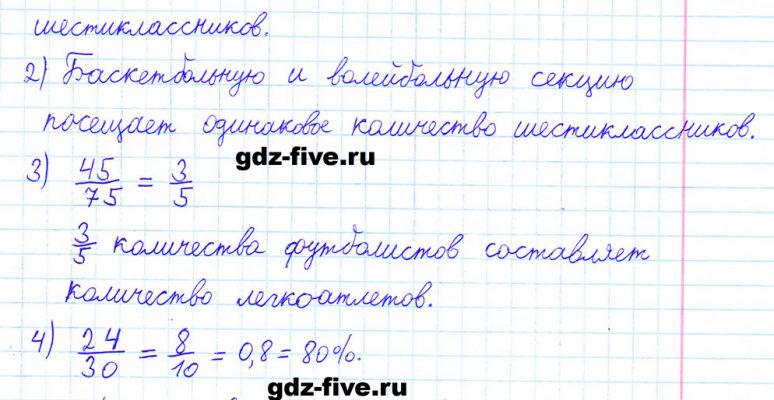 шестиклассников.
2) Баскетбольную и волейбольную секцию
посещает одинаковое количество шестиклассников.
gdz-five.ru
3) 45/75 = 3/5
3/5 количества футболистов составляет
количество легкоатлетов.
4) 24/30 = 8/10 = 0,8 = 80%.
gdz-five.ru